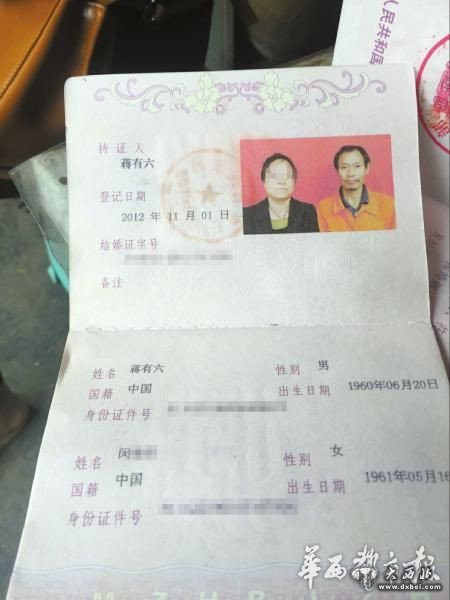 人民共和国
持证人
蒋有六
登记日期
2012 年 11 月 01 日
结婚证字号
备注
姓名 蒋有六 性别 男
国籍 中国 出生日期 1960年06月20日
身份证件号
姓名 闵 性别 女
国籍 中国 出生日期 1961年05月16
身份证件号
M Z H B
华西都市报
www.dxbei.com